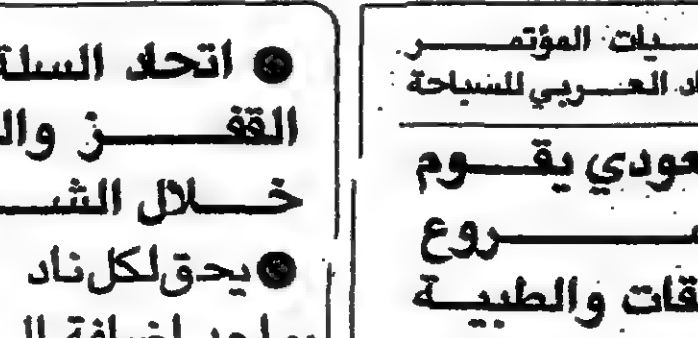 ـيات المؤتمـر
ـاد العـربي للسباحة
ـعودي يقـوم
ـروع
ـقات والطبيـة
● اتحاد السلة
القفـز والـ
خـلال الشـ
● يحق لكل ناد